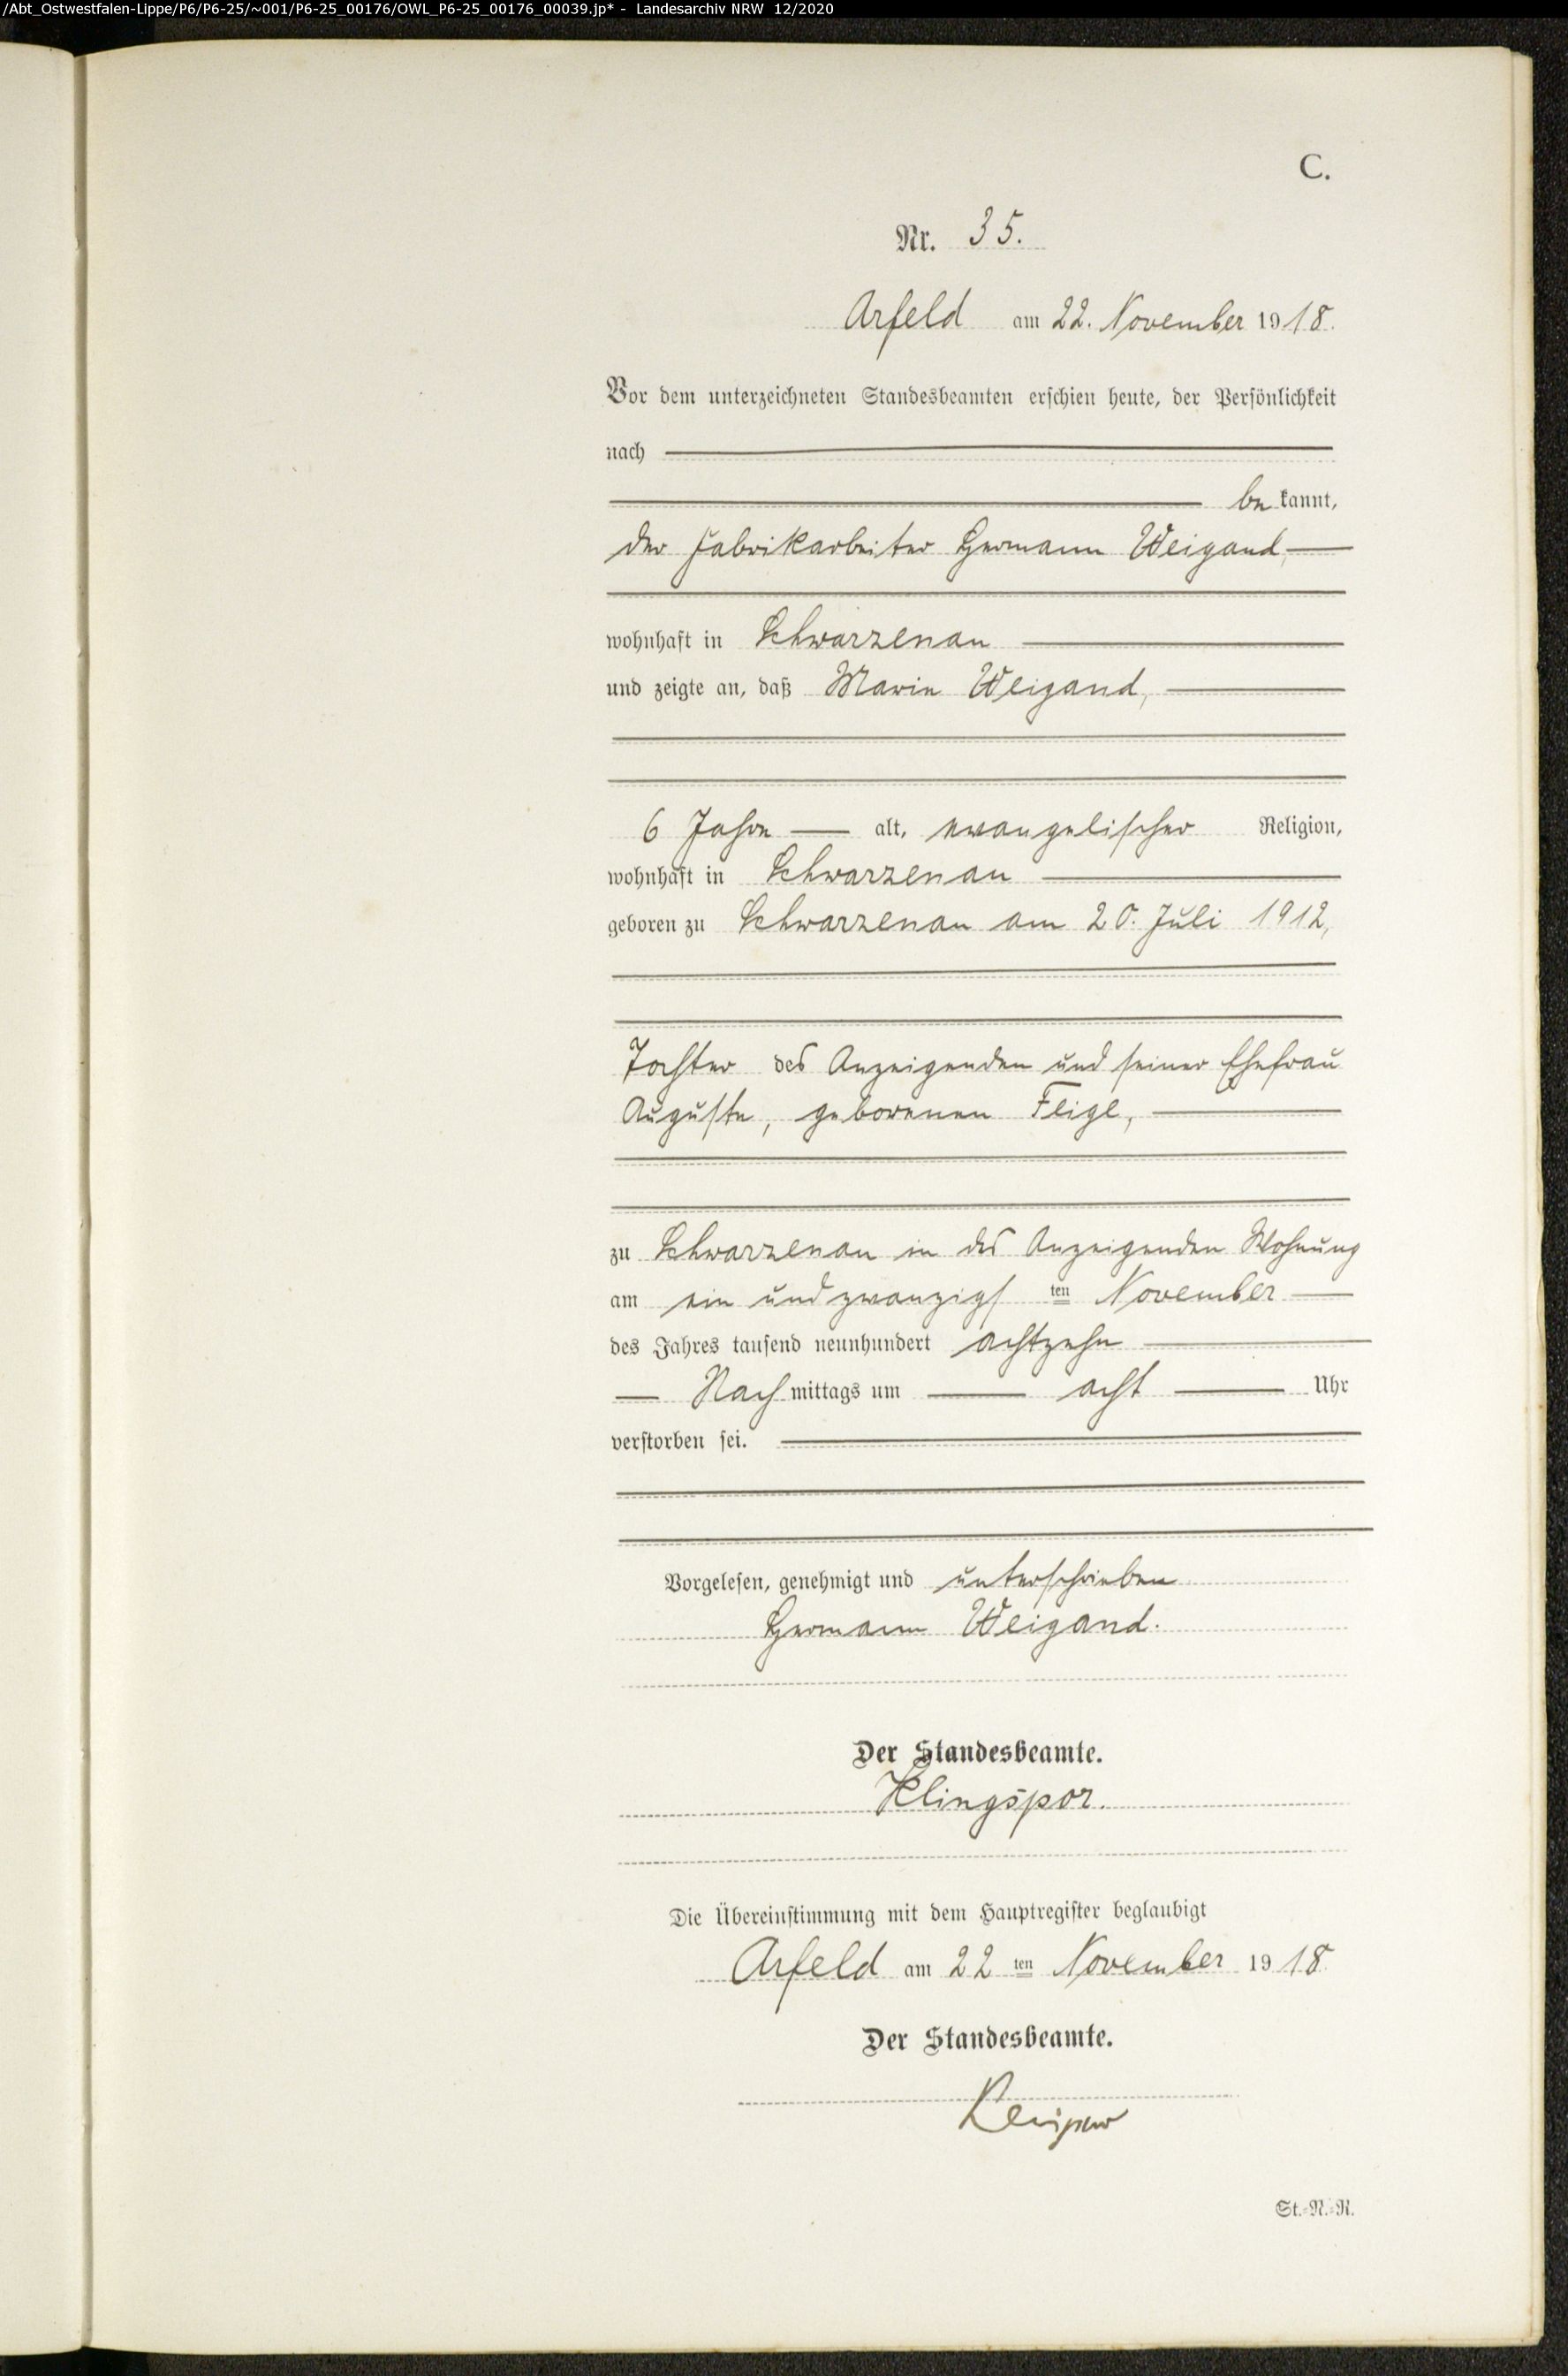 /Abt_Ostwestfalen-Lippe/P6/P6-25/~001/P6-25_00176/OWL_P6-25_00176_00039.jp* - Landesarchiv NRW 12/2020
C.
Nr. 35.
Arfeld am 22. November 1918.
Vor dem unterzeichneten Standesbeamten erschien heute, der Persönlichkeit
nach
be kannt,
der Fabrikarbeiter Hermann Weigand
wohnhaft in Schwarzenau
und zeigte an, daß Marie Weigand,
6 Jahre alt, evangelischer Religion,
wohnhaft in Schwarzenau
geboren zu Schwarzenau am 20. Juli 1912,
Tochter des Anzeigenden und seiner Ehefrau
Auguste, geborenen Feige,
zu Schwarzenau in des Anzeigenden Wohnung
am ein und zwanzigsten November
des Jahres tausend neunhundert achtzehn
Nach mittags um acht Uhr
verstorben sei.
Vorgelesen, genehmigt und unterschrieben
Hermann Weigand.
Der Standesbeamte.
Klingspor.
Die Übereinstimmung mit dem Hauptregister beglaubigt
Arfeld am 22 ten November 1918
Der Standesbeamte.
St.-N.-R.